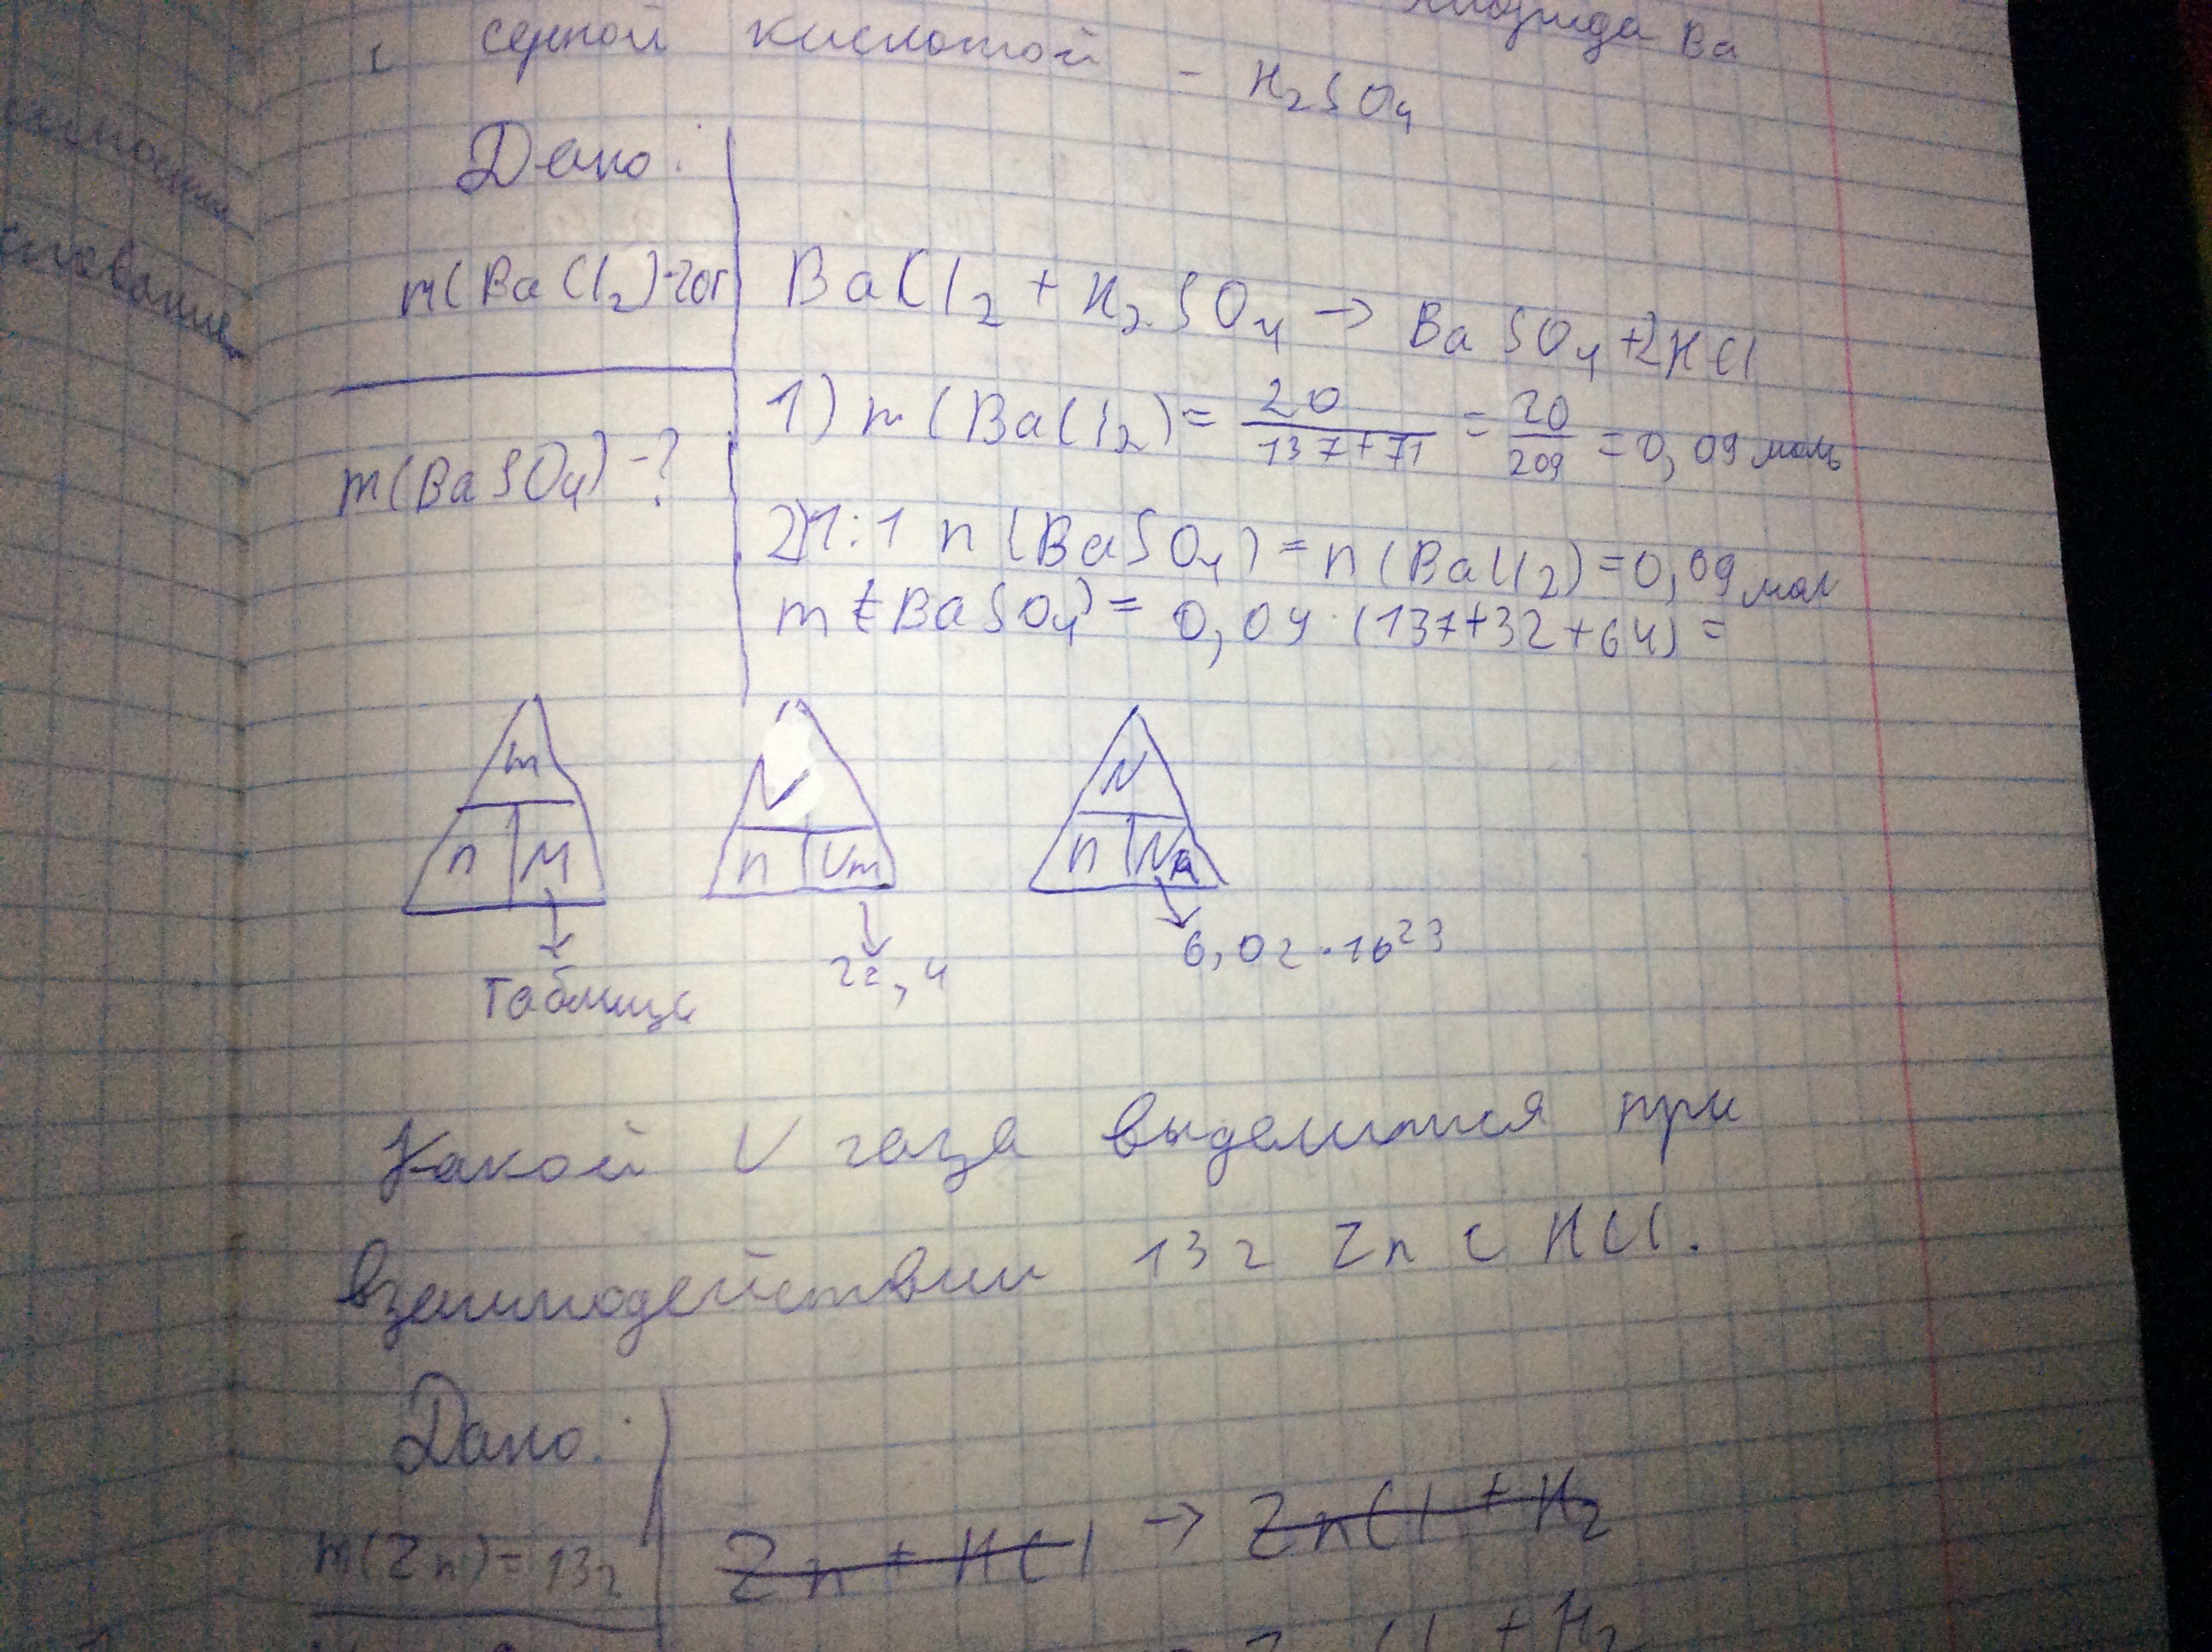 Ba
с серной кислотой - H₂SO₄
Дано:
m(BaCl₂)-20г
m(BaSO₄)-?
BaCl₂ + H₂SO₄ → BaSO₄+2HCl
1) n(BaCl₂)= 20/137+71 = 20/209 = 0,09 моль
2) 1:1 n(BaSO₄) = n(BaCl₂)=0,09 мол
m(BaSO₄) = 0,09·(137+32+64) =
m
n M
Таблица
V
n Vm
22,4
N
n NA
6,02·10²³
Какой V газа выделится при
взаимодействии 13г Zn с HCl.
Дано:
m(Zn)=13г
Zn + HCl → ZnCl + H₂
+ H₂